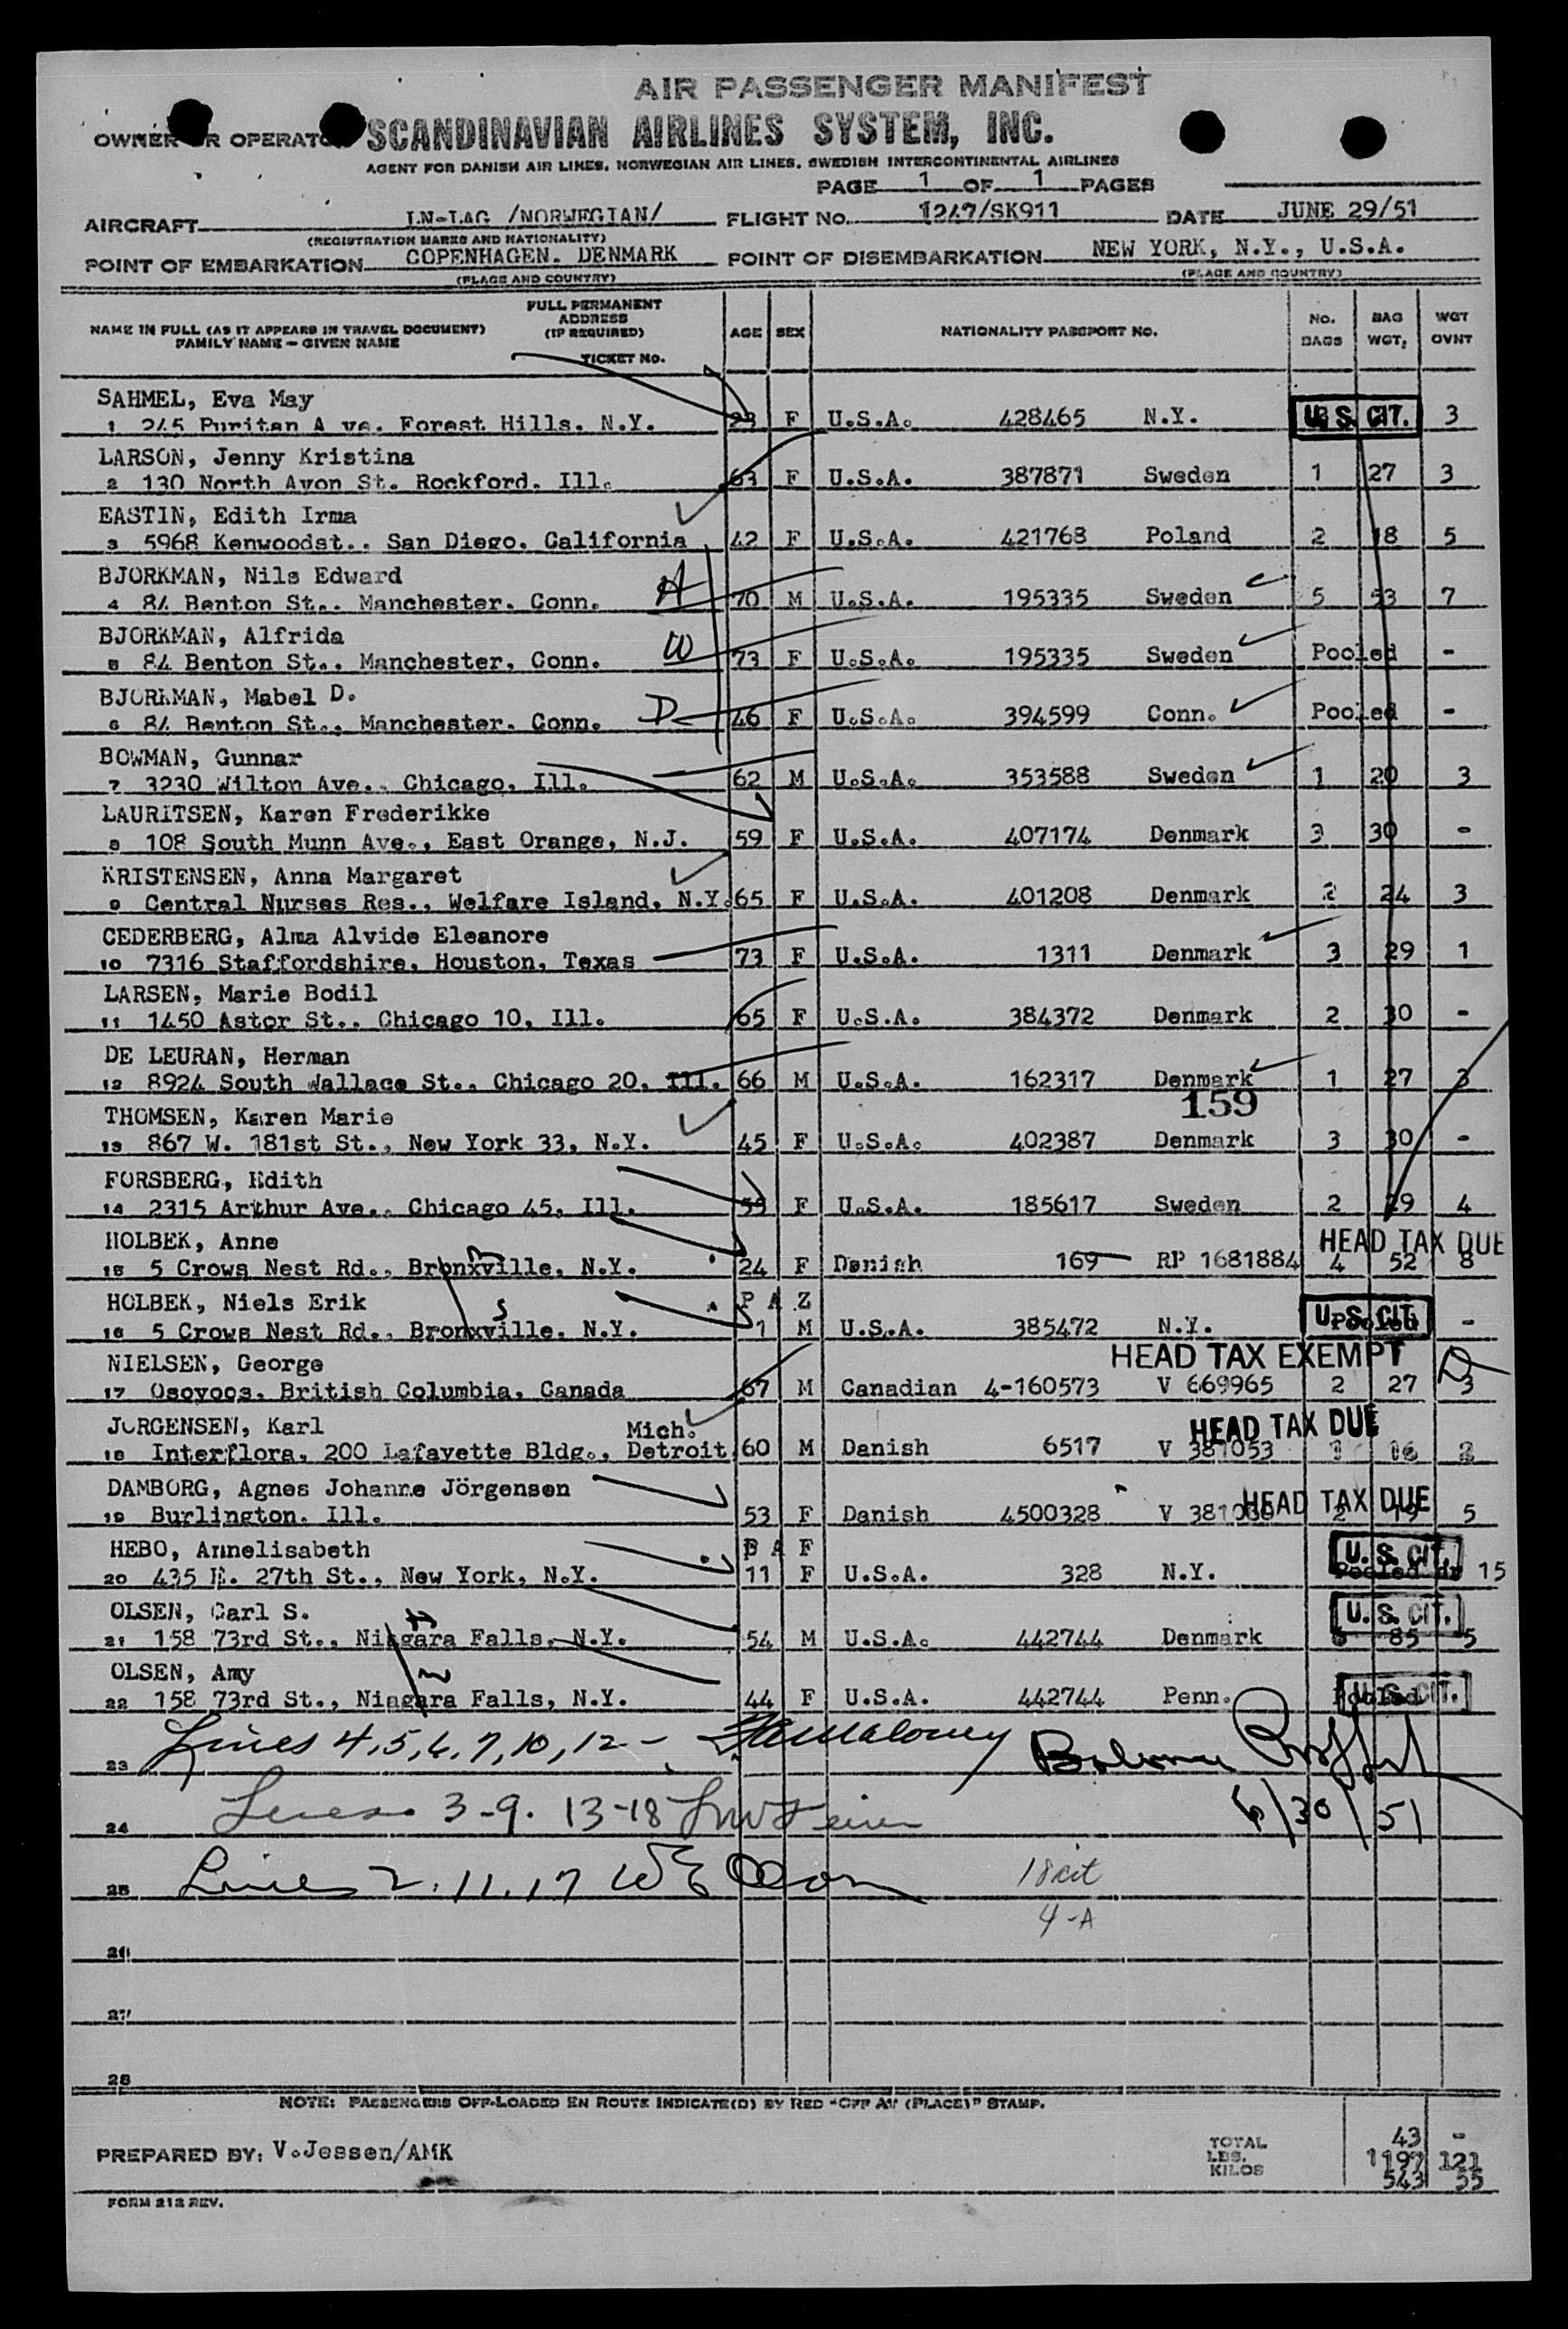 AIR PASSENGER MANIFEST
OWNER OR OPERATOR SCANDINAVIAN AIRLINES SYSTEM, INC.
AGENT FOR DANISH AIR LINES, NORWEGIAN AIR LINES, SWEDISH INTERCONTINENTAL AIRLINES
PAGE 1 OF 1 PAGES
AIRCRAFT LN-LAG /NORWEGIAN/ FLIGHT NO. 1247/SK911 DATE JUNE 29/51
(REGISTRATION MARKS AND NATIONALITY)
POINT OF EMBARKATION COPENHAGEN. DENMARK POINT OF DISEMBARKATION NEW YORK, N.Y., U.S.A.
(PLACE AND COUNTRY) (PLACE AND COUNTRY)
NAME IN FULL (AS IT APPEARS IN TRAVEL DOCUMENT) FAMILY NAME – GIVEN NAME FULL PERMANENT ADDRESS (IF REQUIRED) TICKET NO. AGE SEX NATIONALITY PASSPORT NO. No. BAGS BAG WGT. WGT OVNT
SAHMEL, Eva May
1 245 Puritan A ve. Forest Hills. N.Y. F U.S.A. 428465 N.Y. U.S. CIT. 3
LARSON, Jenny Kristina
2 130 North Avon St. Rockford. Ill. 63 F U.S.A. 387871 Sweden 1 27 3
EASTIN, Edith Irma
3 5968 Kenwoodst.. San Diego. California 42 F U.S.A. 421768 Poland 2 18 5
BJORKMAN, Nils Edward
4 84 Benton St.. Manchester. Conn. H 70 M U.S.A. 195335 Sweden 5 53 7
BJORKMAN, Alfrida
5 84 Benton St.. Manchester, Conn. W 73 F U.S.A. 195335 Sweden Pooled -
BJORKMAN, Mabel D.
6 84 Benton St., Manchester. Conn. D 46 F U.S.A. 394599 Conn. Pooled -
BOWMAN, Gunnar
7 3230 Wilton Ave., Chicago. Ill. 62 M U.S.A. 353588 Sweden 1 20 3
LAURITSEN, Karen Frederikke
8 108 South Munn Ave., East Orange, N.J. 59 F U.S.A. 407174 Denmark 3 30 -
KRISTENSEN, Anna Margaret
9 Central Nurses Res., Welfare Island, N.Y. 65 F U.S.A. 401208 Denmark 2 24 3
CEDERBERG, Alma Alvide Eleanore
10 7316 Staffordshire, Houston, Texas 73 F U.S.A. 1311 Denmark 3 29 1
LARSEN, Marie Bodil
11 1450 Astor St.. Chicago 10, Ill. 65 F U.S.A. 384372 Denmark 2 30 -
DE LEURAN, Herman
12 8924 South Wallace St., Chicago 20, Ill. 66 M U.S.A. 162317 Denmark 1 27 3
159
THOMSEN, Karen Marie
13 867 W. 181st St., New York 33, N.Y. 45 F U.S.A. 402387 Denmark 3 30 -
FORSBERG, Edith
14 2315 Arthur Ave., Chicago 45, Ill. 55 F U.S.A. 185617 Sweden 2 29 4
HOLBEK, Anne HEAD TAX DUE
15 5 Crows Nest Rd., Bronxville, N.Y. 24 F Danish 169 RP 1681884 4 52 8
HOLBEK, Niels Erik P A Z
16 5 Crows Nest Rd., Bronxville, N.Y. 1 M U.S.A. 385472 N.Y. U.S. CIT. -
NIELSEN, George HEAD TAX EXEMPT
17 Osoyoos, British Columbia, Canada 67 M Canadian 4-160573 V 669965 2 27 3
JORGENSEN, Karl HEAD TAX DUE
18 Interflora, 200 Lafayette Bldg., Detroit Mich. 60 M Danish 6517 V 381053 1 16 2
DAMBORG, Agnes Johanne Jörgensen HEAD TAX DUE
19 Burlington. Ill. 53 F Danish 4500328 V 2 19 5
HEBO, Annelisabeth
20 435 E. 27th St., New York, N.Y. 11 F U.S.A. 328 N.Y. U.S. CIT. Pooled 15
OLSEN, Carl S. U.S. CIT.
21 158 73rd St., Niagara Falls, N.Y. 54 M U.S.A. 442744 Denmark 85 5
OLSEN, Amy
22 158 73rd St., Niagara Falls, N.Y. 44 F U.S.A. 442744 Penn. Pooled U.S. CIT.
23 Lines 4,5,6,7,10,12 -
24 Lines 3-9. 13-18 6/30/51
25 Lines 2. 11. 17 18 cit
4-A
26
27
28
NOTE: PASSENGERS OFF-LOADED EN ROUTE INDICATE(D) BY RED "OFF AT (PLACE)" STAMP.
PREPARED BY: V.Jessen/AMK
TOTAL 43 -
LBS. 1197 121
KILOS 543 55
FORM 212 REV.